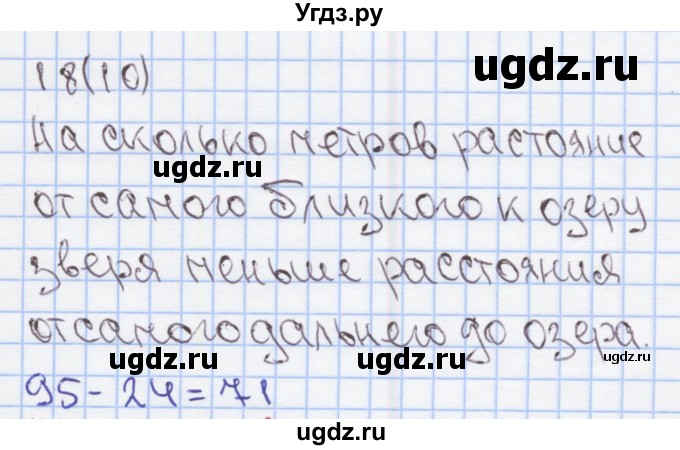 Угдз.ру
18(10)
ugdz.ru
На сколько метров растояние
ugdz.ru
от самого близкого к озеру
зверя меньше расстояния
от самого дальнего до озера.
ugdz.ru
ugdz.ru
ugdz.ru
95-24=71
ugdz.ru